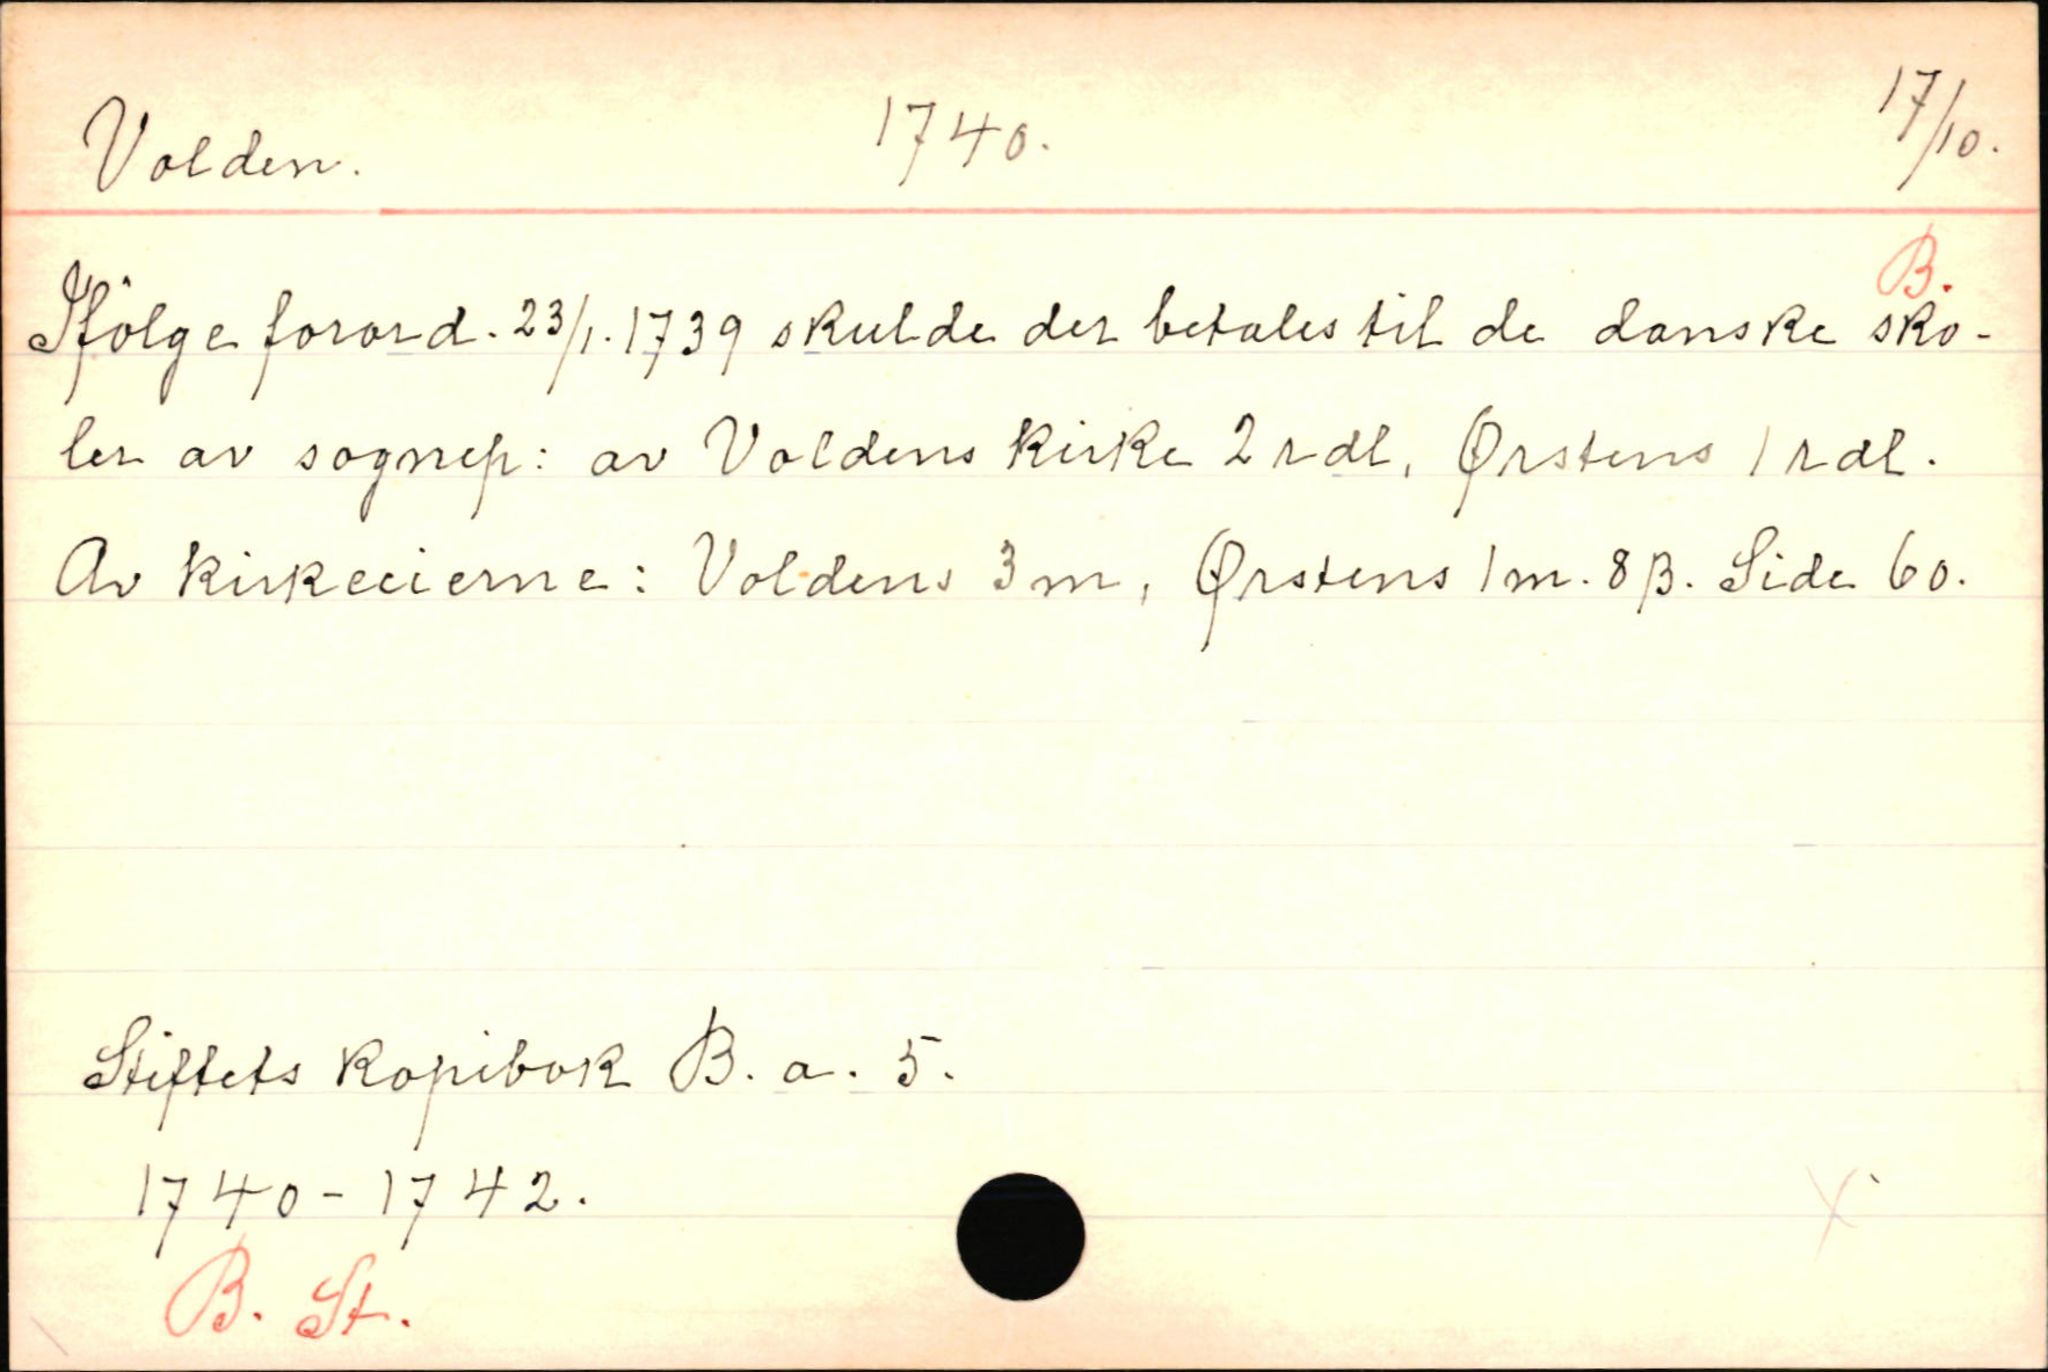 Volden. 1740. 17/10.
B.
Ifölge forord. 23/1. 1739 skulde der betales til de danske sko-
ler av sognep: av Voldens kirke 2 rdl, Ørstens 1 rdl.
Av kirkeeierne: Voldens 3 m, Ørstens 1 m. 8 β. Side 60.
Stiftets kopibok B. a. 5.
1740-1742.
B. St.
X